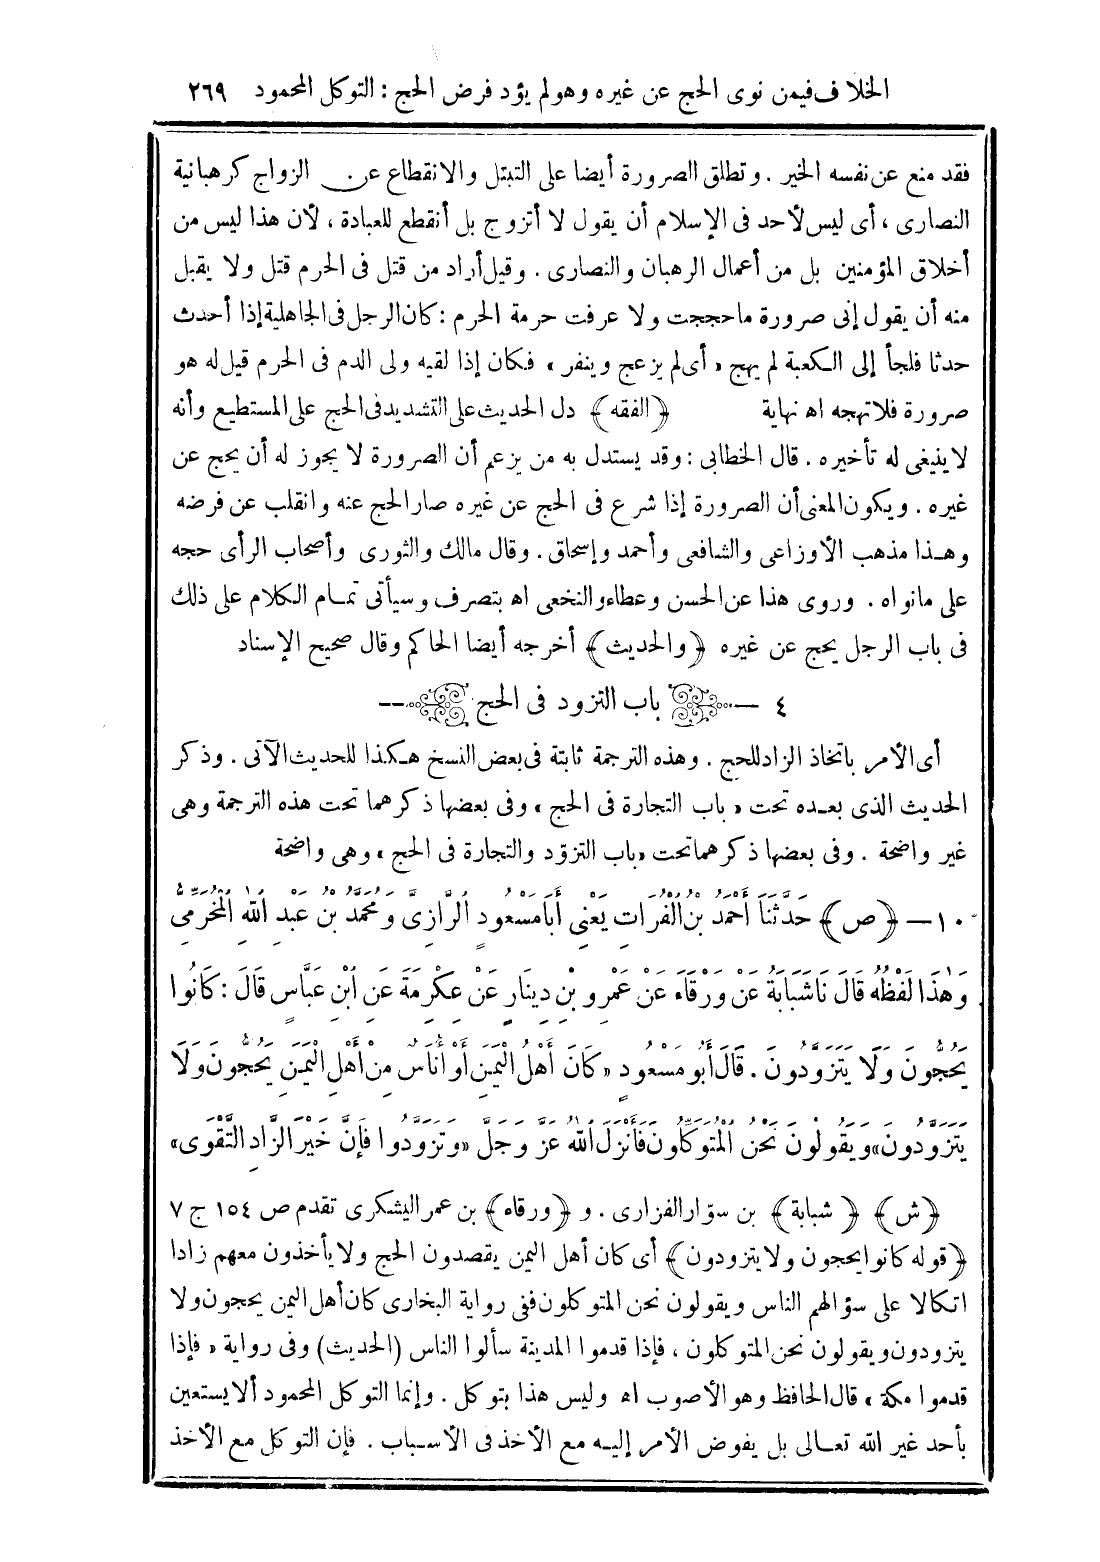 الخلاف فيمن نوى الحج عن غيره وهو لم يؤد فرض الحج : التوكل المحمود ٢٦٩
فقد منع عن نفسه الخير . وتطلق الصرورة أيضا على التبتل والانقطاع عن الزواج كرهبانية
النصارى ، أى ليس لأحد فى الإسلام أن يقول لا أتزوج بل أنقطع للعبادة ، لأن هذا ليس من
أخلاق المؤمنين بل من أعمال الرهبان والنصارى . وقيل أراد من قتل فى الحرم قتل ولا يقبل
منه أن يقول إنى صرورة ما حججت ولا عرفت حرمة الحرم : كان الرجل فى الجاهلية إذا أحدث
حدثا فلجأ إلى الكعبة لم يهج « أى لم يزعج وينفر » فكان إذا لقيه ولى الدم فى الحرم قيل له هو
صرورة فلا تهجه اه نهاية ﴿الفقه﴾ دل الحديث على التشديد فى الحج على المستطيع وأنه
لا ينبغى له تأخيره . قال الخطابى : وقد يستدل به من يزعم أن الصرورة لا يجوز له أن يحج عن
غيره . ويكون المعنى أن الصرورة إذا شرع فى الحج عن غيره صار الحج عنه وانقلب عن فرضه
وهـذا مذهب الأوزاعى والشافعى وأحمد وإسحاق . وقال مالك والثورى وأصحاب الرأى حجه
على ما نواه . وروى هذا عن الحسن وعطاء والنخعى اه بتصرف وسيأتى تمـام الكلام على ذلك
فى باب الرجل يحج عن غيره ﴿والحديث﴾ أخرجه أيضا الحاكم وقال صحيح الإسناد
٤ — باب التزود فى الحج —
أى الأمر باتخاذ الزاد للحج . وهذه الترجمة ثابتة فى بعض النسخ هـكذا للحديث الآتى . وذكر
الحديث الذى بعـده تحت « باب التجارة فى الحج » وفى بعضها ذكرهما تحت هذه الترجمة وهى
غير واضحة . وفى بعضها ذكرهما تحت «باب التزوّد والتجارة فى الحج » وهى واضحة
١٠ — ﴿ص﴾ حَدَّثَنَا أَحْمَدُ بْنُ الْفُرَاتِ يَعْنِى أَبَا مَسْعُودٍ الرَّازِىَّ وَمُحَمَّدُ بْنُ عَبْدِ اللهِ الْمُخَرِّمِىُّ
وَهٰذَا لَفْظُهُ قَالَ نَا شَبَابَةُ عَنْ وَرْقَاءَ عَنْ عَمْرِو بْنِ دِينَارٍ عَنْ عِكْرِمَةَ عَنِ ابْنِ عَبَّاسٍ قَالَ : كَانُوا
يَحُجُّونَ وَلَا يَتَزَوَّدُونَ . قَالَ أَبُو مَسْعُودٍ «كَانَ أَهْلُ الْيَمَنِ أَوْ أُنَاسٌ مِنْ أَهْلِ الْيَمَنِ يَحُجُّونَ وَلَا
يَتَزَوَّدُونَ» وَيَقُولُونَ نَحْنُ الْمُتَوَكِّلُونَ فَأَنْزَلَ اللهُ عَزَّ وَجَلَّ «وَتَزَوَّدُوا فَإِنَّ خَيْرَ الزَّادِ التَّقْوَى»
﴿ش﴾ ﴿شبابة﴾ بن سوّار الفزارى . و ﴿ورقاء﴾ بن عمر اليشكرى تقدم ص ١٥٤ ج ٧
﴿قوله كانوا يحجون ولا يتزودون﴾ أى كان أهل اليمن يقصدون الحج ولا يأخذون معهم زادا
اتكالا على سؤالهم الناس ويقولون نحن المتوكلون ففى رواية البخارى كان أهل اليمن يحجون ولا
يتزودون ويقولون نحن المتوكلون ، فإذا قدموا المدينة سألوا الناس (الحديث) وفى رواية « فإذا
قدموا مكة » قال الحافظ وهو الأصوب اه وليس هذا بتوكل . وإنما التوكل المحمود ألا يستعين
بأحد غير الله تعـالى بل يفوض الأمر إليـه مع الأخذ فى الأسـباب . فإن التوكل مع الأخذ